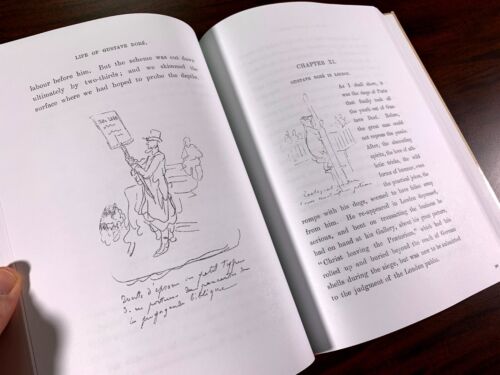 LIFE OF GUSTAVE DORÉ.
labour before him. But the scheme was cut down
ultimately by two-thirds; and we skimmed the
surface where we had hoped to probe the depths.
CHAPTER XI.
GUSTAVE DORÉ IN LONDON.
As I shall show, it
was the siege of Paris
that finally took all
the youth out of Gus-
tave Doré. Before,
the great man could
not repress the gamin.
After, the absorbing
spirits, the love of ath-
letic tricks, the wild
forms of humour,
the practical joke, the
romps with his dogs, seemed to have fallen away
from him. He re-appeared in London depressed,
serious, and bent on transacting the business he
had on hand at his Gallery, about his great picture,
"Christ leaving the Prætorium," which had been
rolled up and buried beyond the reach of German
shells during the siege, but was now to be submitted
to the judgment of the London public.